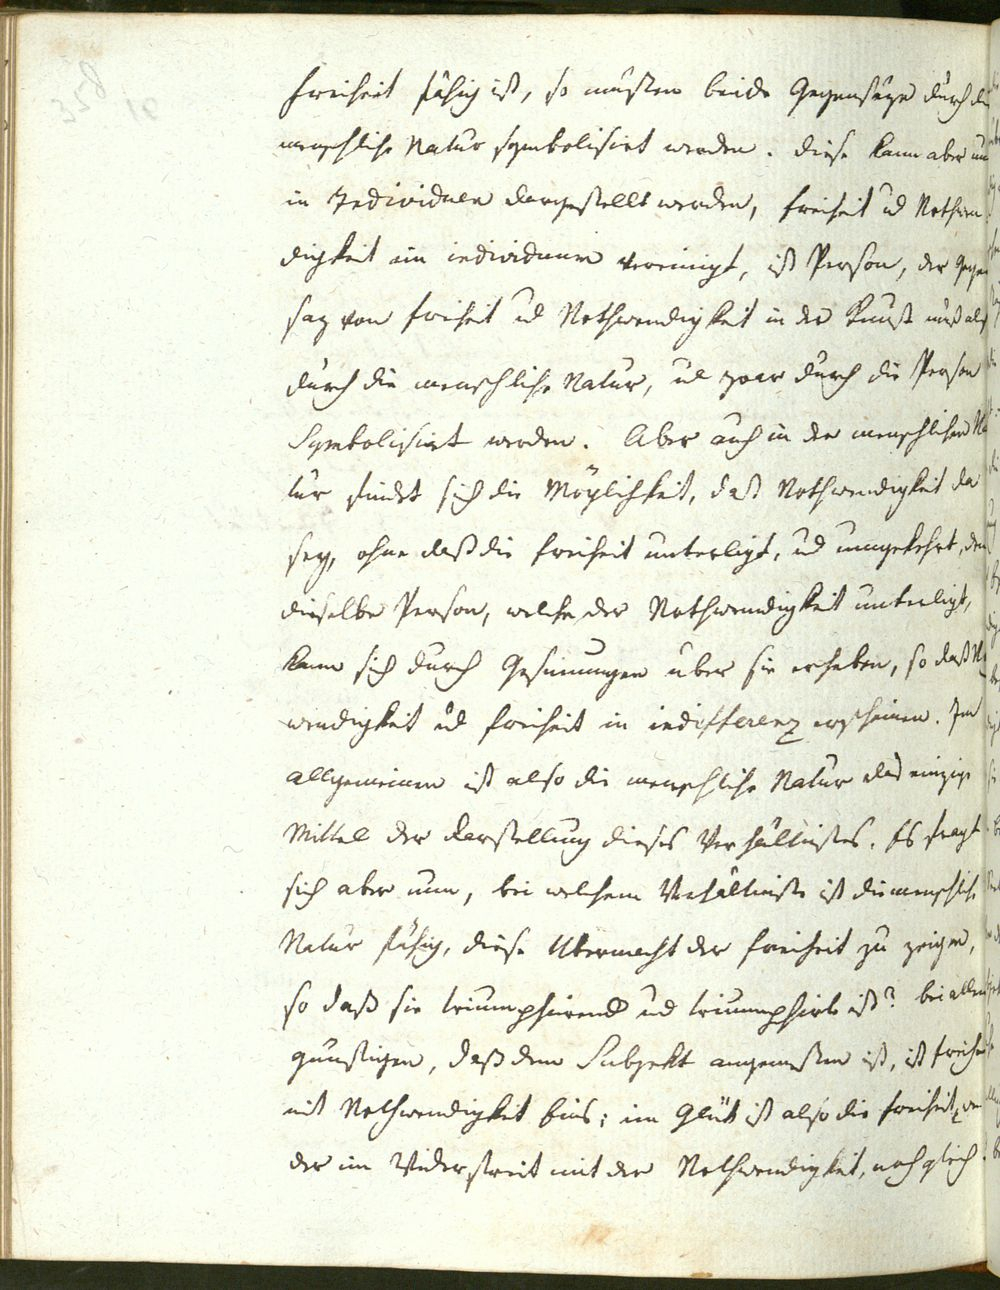 Freiheit fähig ist, so müßen beide Gegensäze durch die
menschliche Natur symbolisirt werden. diese kann aber nur
in Individuen dargestellt werden, Freiheit ud Nothwen
digkeit ein individuum vereinigt, ist Person, der Gegen
saz von Freiheit ud Nothwendigkeit in der Kunst muß also
durch die menschliche Natur, ud zwar durch die Person
Symbolisirt werden. Aber auch in der menschlichen Na
tur findet sich die Möglichkeit, daß Nothwendigkeit da
sey, ohne daß die Freiheit unterligt, ud umgekehrt, den
dieselbe Person, welche der Nothwendigkeit unterligt,
kann sich durch Gesinnungen über sie erheben, so daß No
wendigkeit ud Freiheit in indifferenz erscheinen. Im
allgemeinen ist also die menschliche Natur das einzige
Mittel der Darstellung dieses Verhältnißes. Es fragt
sich aber nun, bei welchem Verhältniße ist die menschliche
Natur fähig, diese Übermacht der Freiheit zu zeigen,
so daß sie triumphirend ud triumphirt ist? bei allem
günstigen, daß dem Subjekt angemeßen ist, ist Freiheit
mit Nothwendigkeit Eins; im Glük ist also die Freiheit, we
der im Widerstreit mit der Nothwendigkeit, noch gleich